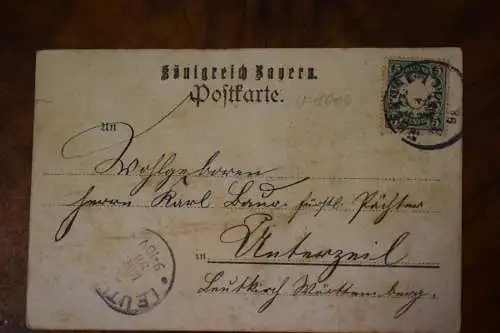 Königreich Bayern.
Postkarte.
An
Wohlgeboren
Herrn Karl Baur fürstl. Pächter
in Unterzeil
Leutkirch Württemberg.
LEUT
98